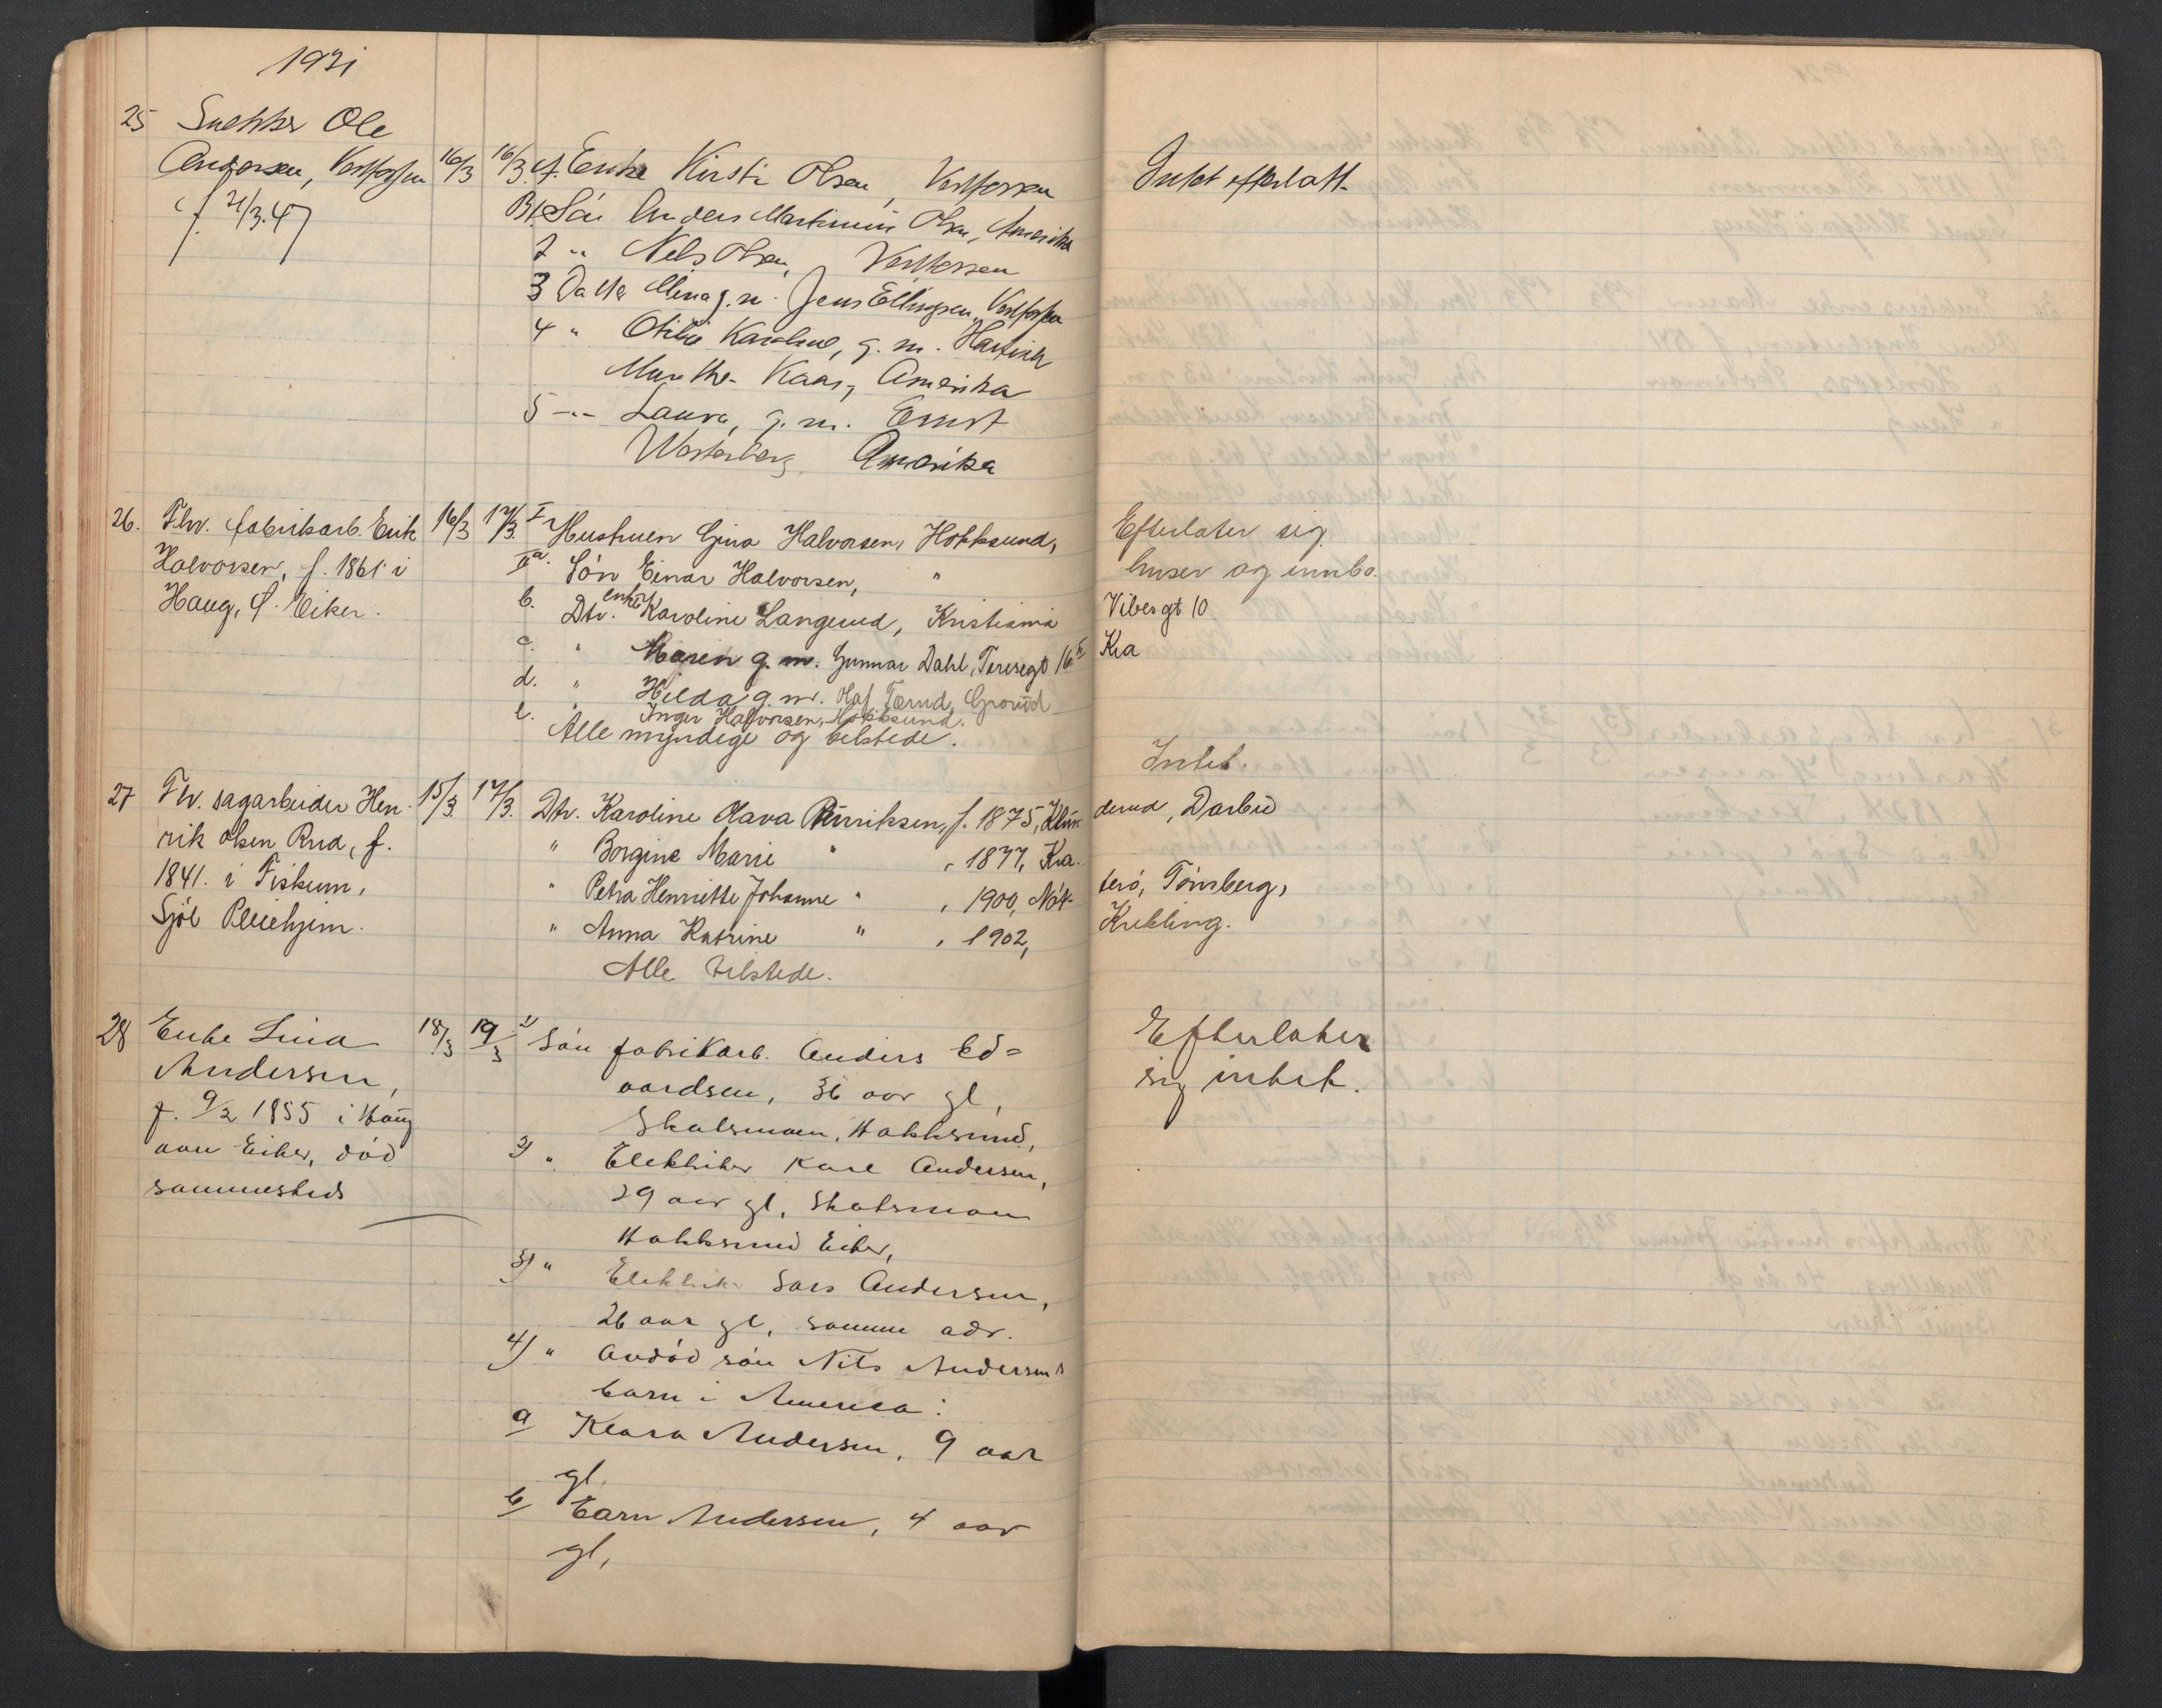 1921
25 Snekker Ole
Andersen, Vestfossen 16/3 16/3 A. Enke Kirsti Olsen, Vestfossen Intet efterlatt.
f. 21/3.47 B1. Søn Anders Martinius Olsen, Amerika
2 " Nels Olsen, Vestfossen
3 Datter Mina g. m. Jens Ellingsen, Vestfossen
4 " Otilie Karoline, g. m.
Kaas, Amerika
5 -"- Laura, g. m. Ernst
Westerberg Amerika
26. Fhv. fabrikarb. Erik 16/3 17/3. I Hustruen Gina Halvorsen, Hokksund, Efterlater sig
Halvorsen, f. 1861 i IIa. Søn Einar Halvorsen, " huser og innbo.
Haug, Ø. Eiker. b. Dtr. enke Karoline Langerud, Kristiania Vibesgt 10
c. " Maren g. m. Gunnar Dahl, Teresegt 16 II Kra
d. " Hilda g. m. Olaf Tærud, Grorud
e. Inger Halvorsen, Hokksund.
Alle myndige og tilstede.
Intet.
27 Fhv. sagarbeider Hen- 15/3 17/3. Dtr. Karoline Olava Henriksen, f. 1875, Klun- derud, Darbu
rik Olsen Rud, f. " Borgine Marie " , 1877, Kra.
1841. i Fiskum, " Petra Henriette Johanne " , 1900, Nöt- terö, Tönsberg,
Sjöl Pleiehjem. " Anna Katrine " , 1902, Krekling.
Alle tilstede.
28 Enke Lina 18/3 19/3 1/ Søn fabrikarb. Anders Ed= Efterlater
Andersen, vardsen, 36 aar gl, sig intet.
f. 9/2 1855 i Haug Skotsmoen, Hokksund,
øvre Eiker, död 2) " Elektriker Karl Andersen,
sammesteds 29 aar gl, Skotsmoen
Hokksund Eiker,
3) " Elektriker Lars Andersen,
26 aar gl, samme adr.
4) " Avdöd sön Nils Andersens
barn i America:
a Klara Andersen, 9 aar
gl.
b Earn Andersen, 4 aar
gl,